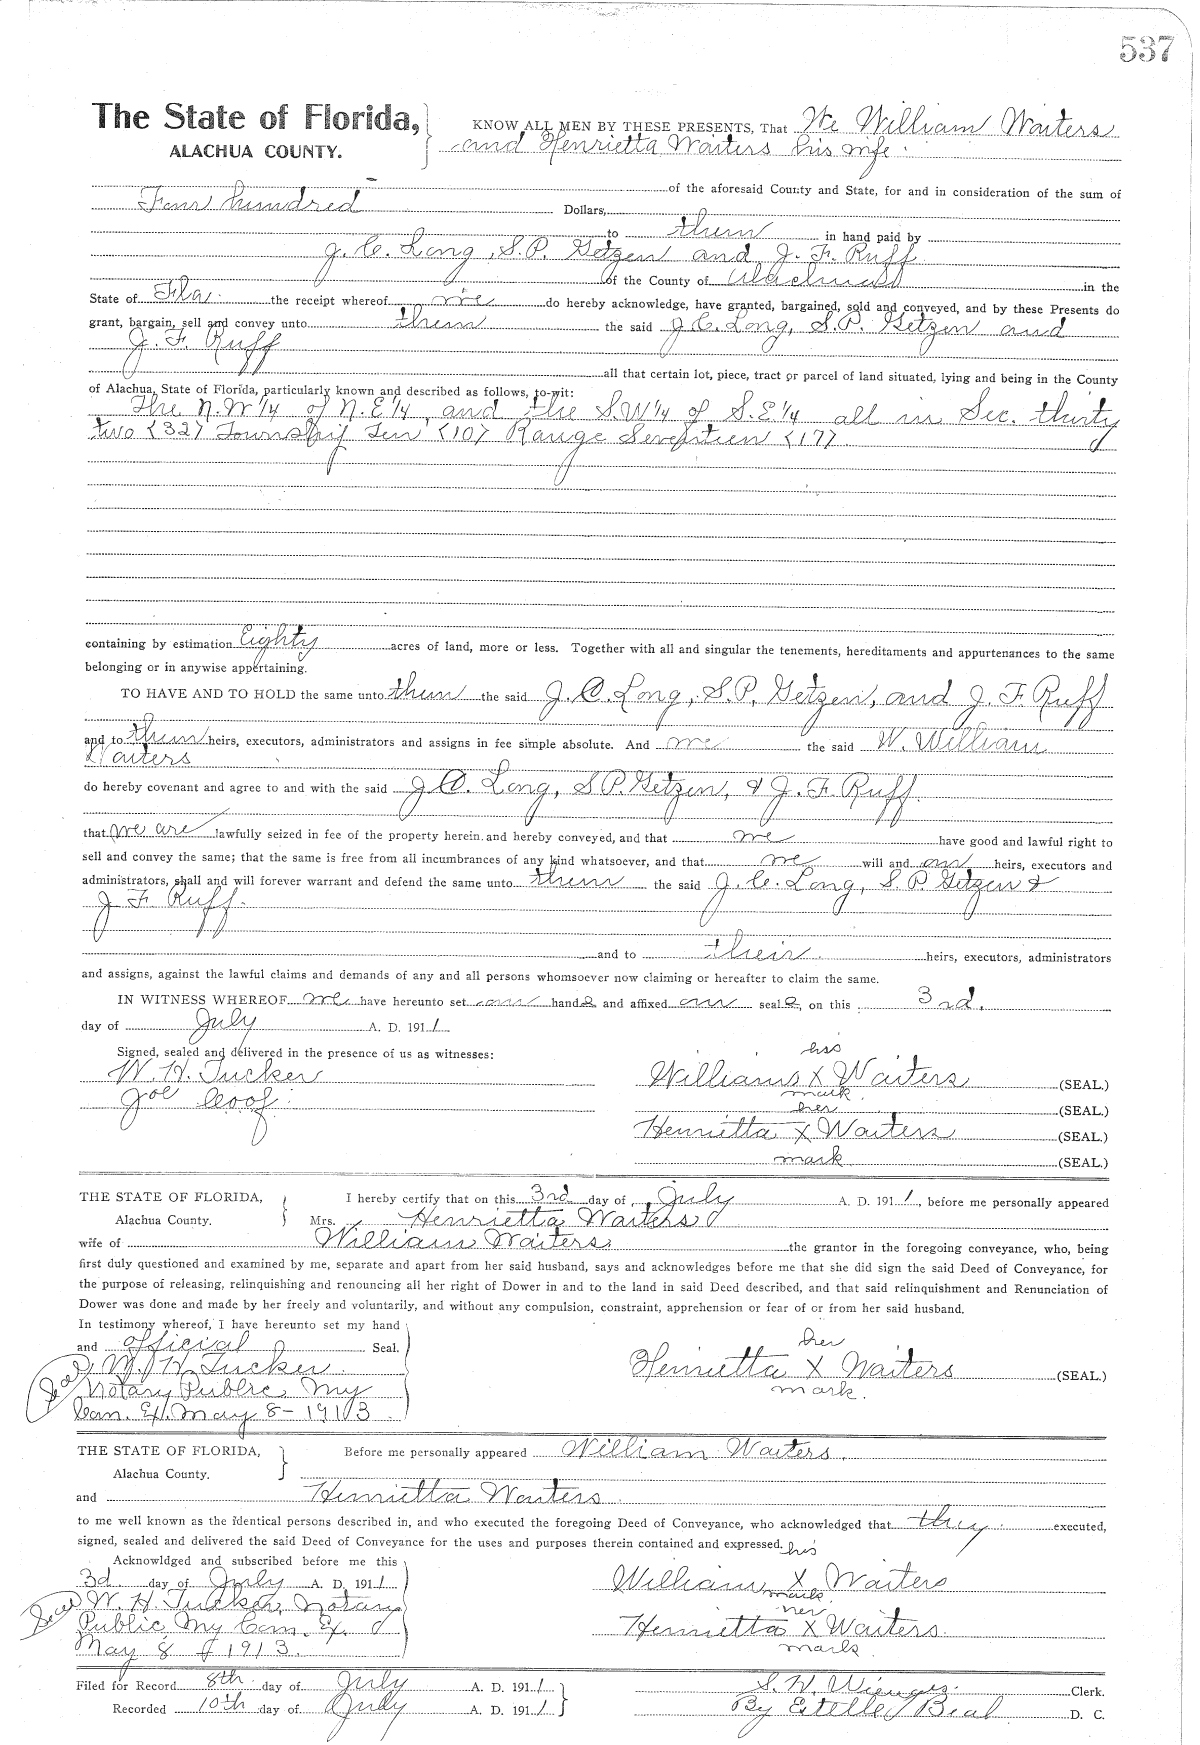 537
The State of Florida, KNOW ALL MEN BY THESE PRESENTS, That We William Waiters
ALACHUA COUNTY. and Henrietta Waiters his wife.
of the aforesaid County and State, for and in consideration of the sum of
Four hundred Dollars,
to them in hand paid by
J. C. Long, S.P. Getzen and J. F. Ruff
of the County of Alachua in the
State of Fla. the receipt whereof we do hereby acknowledge, have granted, bargained, sold and conveyed, and by these Presents do
grant, bargain, sell and convey unto them the said J C. Long, S.P. Getzen and
J. F. Ruff
all that certain lot, piece, tract or parcel of land situated, lying and being in the County
of Alachua, State of Florida, particularly known and described as follows, to-wit:
The N.W 1/4 of N.E 1/4, and the S.W 1/4 of S.E 1/4 all in Sec. thirty
two (32) Township Ten (10) Range Seventeen (17)
containing by estimation Eighty acres of land, more or less. Together with all and singular the tenements, hereditaments and appurtenances to the same
belonging or in anywise appertaining.
TO HAVE AND TO HOLD the same unto them the said J. C. Long, S.P. Getzen, and J. F. Ruff
and to them heirs, executors, administrators and assigns in fee simple absolute. And we the said W. William
Waiters
do hereby covenant and agree to and with the said J C. Long, S P. Getzen, & J. F. Ruff.
that we are lawfully seized in fee of the property herein and hereby conveyed, and that we have good and lawful right to
sell and convey the same; that the same is free from all incumbrances of any kind whatsoever, and that we will and our heirs, executors and
administrators, shall and will forever warrant and defend the same unto them the said J. C. Long, S. P. Getzen &
J F. Ruff.
and to their heirs, executors, administrators
and assigns, against the lawful claims and demands of any and all persons whomsoever now claiming or hereafter to claim the same.
IN WITNESS WHEREOF we have hereunto set our hands and affixed our seals, on this 3rd.
day of July A. D. 1911.
Signed, sealed and delivered in the presence of us as witnesses:
his
W. H. Tucker Williams X Waiters (SEAL.)
mark
Joe her (SEAL.)
Henrietta X Waiters (SEAL.)
mark (SEAL.)
THE STATE OF FLORIDA, I hereby certify that on this 3rd day of July A. D. 1911, before me personally appeared
Alachua County. Mrs. Henrietta Waiters
wife of William Waiters the grantor in the foregoing conveyance, who, being
first duly questioned and examined by me, separate and apart from her said husband, says and acknowledges before me that she did sign the said Deed of Conveyance, for
the purpose of releasing, relinquishing and renouncing all her right of Dower in and to the land in said Deed described, and that said relinquishment and Renunciation of
Dower was done and made by her freely and voluntarily, and without any compulsion, constraint, apprehension or fear of or from her said husband.
In testimony whereof, I have hereunto set my hand
and official Seal. her
Seal W. H. Tucker Henrietta X Waiters (SEAL.)
Notary Public My mark.
Com. Ex. May 8-1913.
THE STATE OF FLORIDA, Before me personally appeared William Waiters.
Alachua County.
and Henrietta Waiters
to me well known as the identical persons described in, and who executed the foregoing Deed of Conveyance, who acknowledged that they executed,
signed, sealed and delivered the said Deed of Conveyance for the uses and purposes therein contained and expressed.
Acknowldged and subscribed before me this his
3d day of July A. D. 1911. William X Waiters
mark
Seal W. H. Tucker, Notary her
Public My Com. Ex. Henrietta X Waiters
May 8 1913. mark
Filed for Record 8th day of July A. D. 1911 S. H. Wienges. Clerk.
Recorded 10th day of July A. D. 1911 By Estelle Beal D. C.